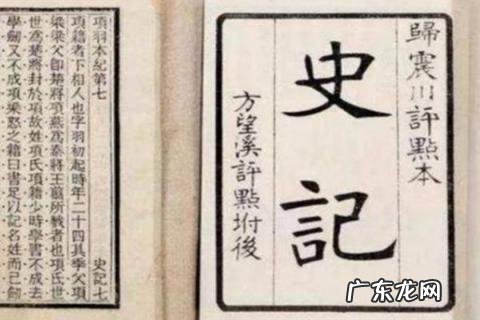 歸震川評點本
史記
方望溪評點坿後
項羽本紀第七
史記七
項籍者下相人也字羽初起時年二十四其季父項
梁梁父卽楚將項燕爲秦將王翦所戮者也項氏世
世爲楚將封於項故姓項氏項籍少時學書不成去
學劍又不成項梁怒之籍曰書足以記名姓而已劍
广东龙网